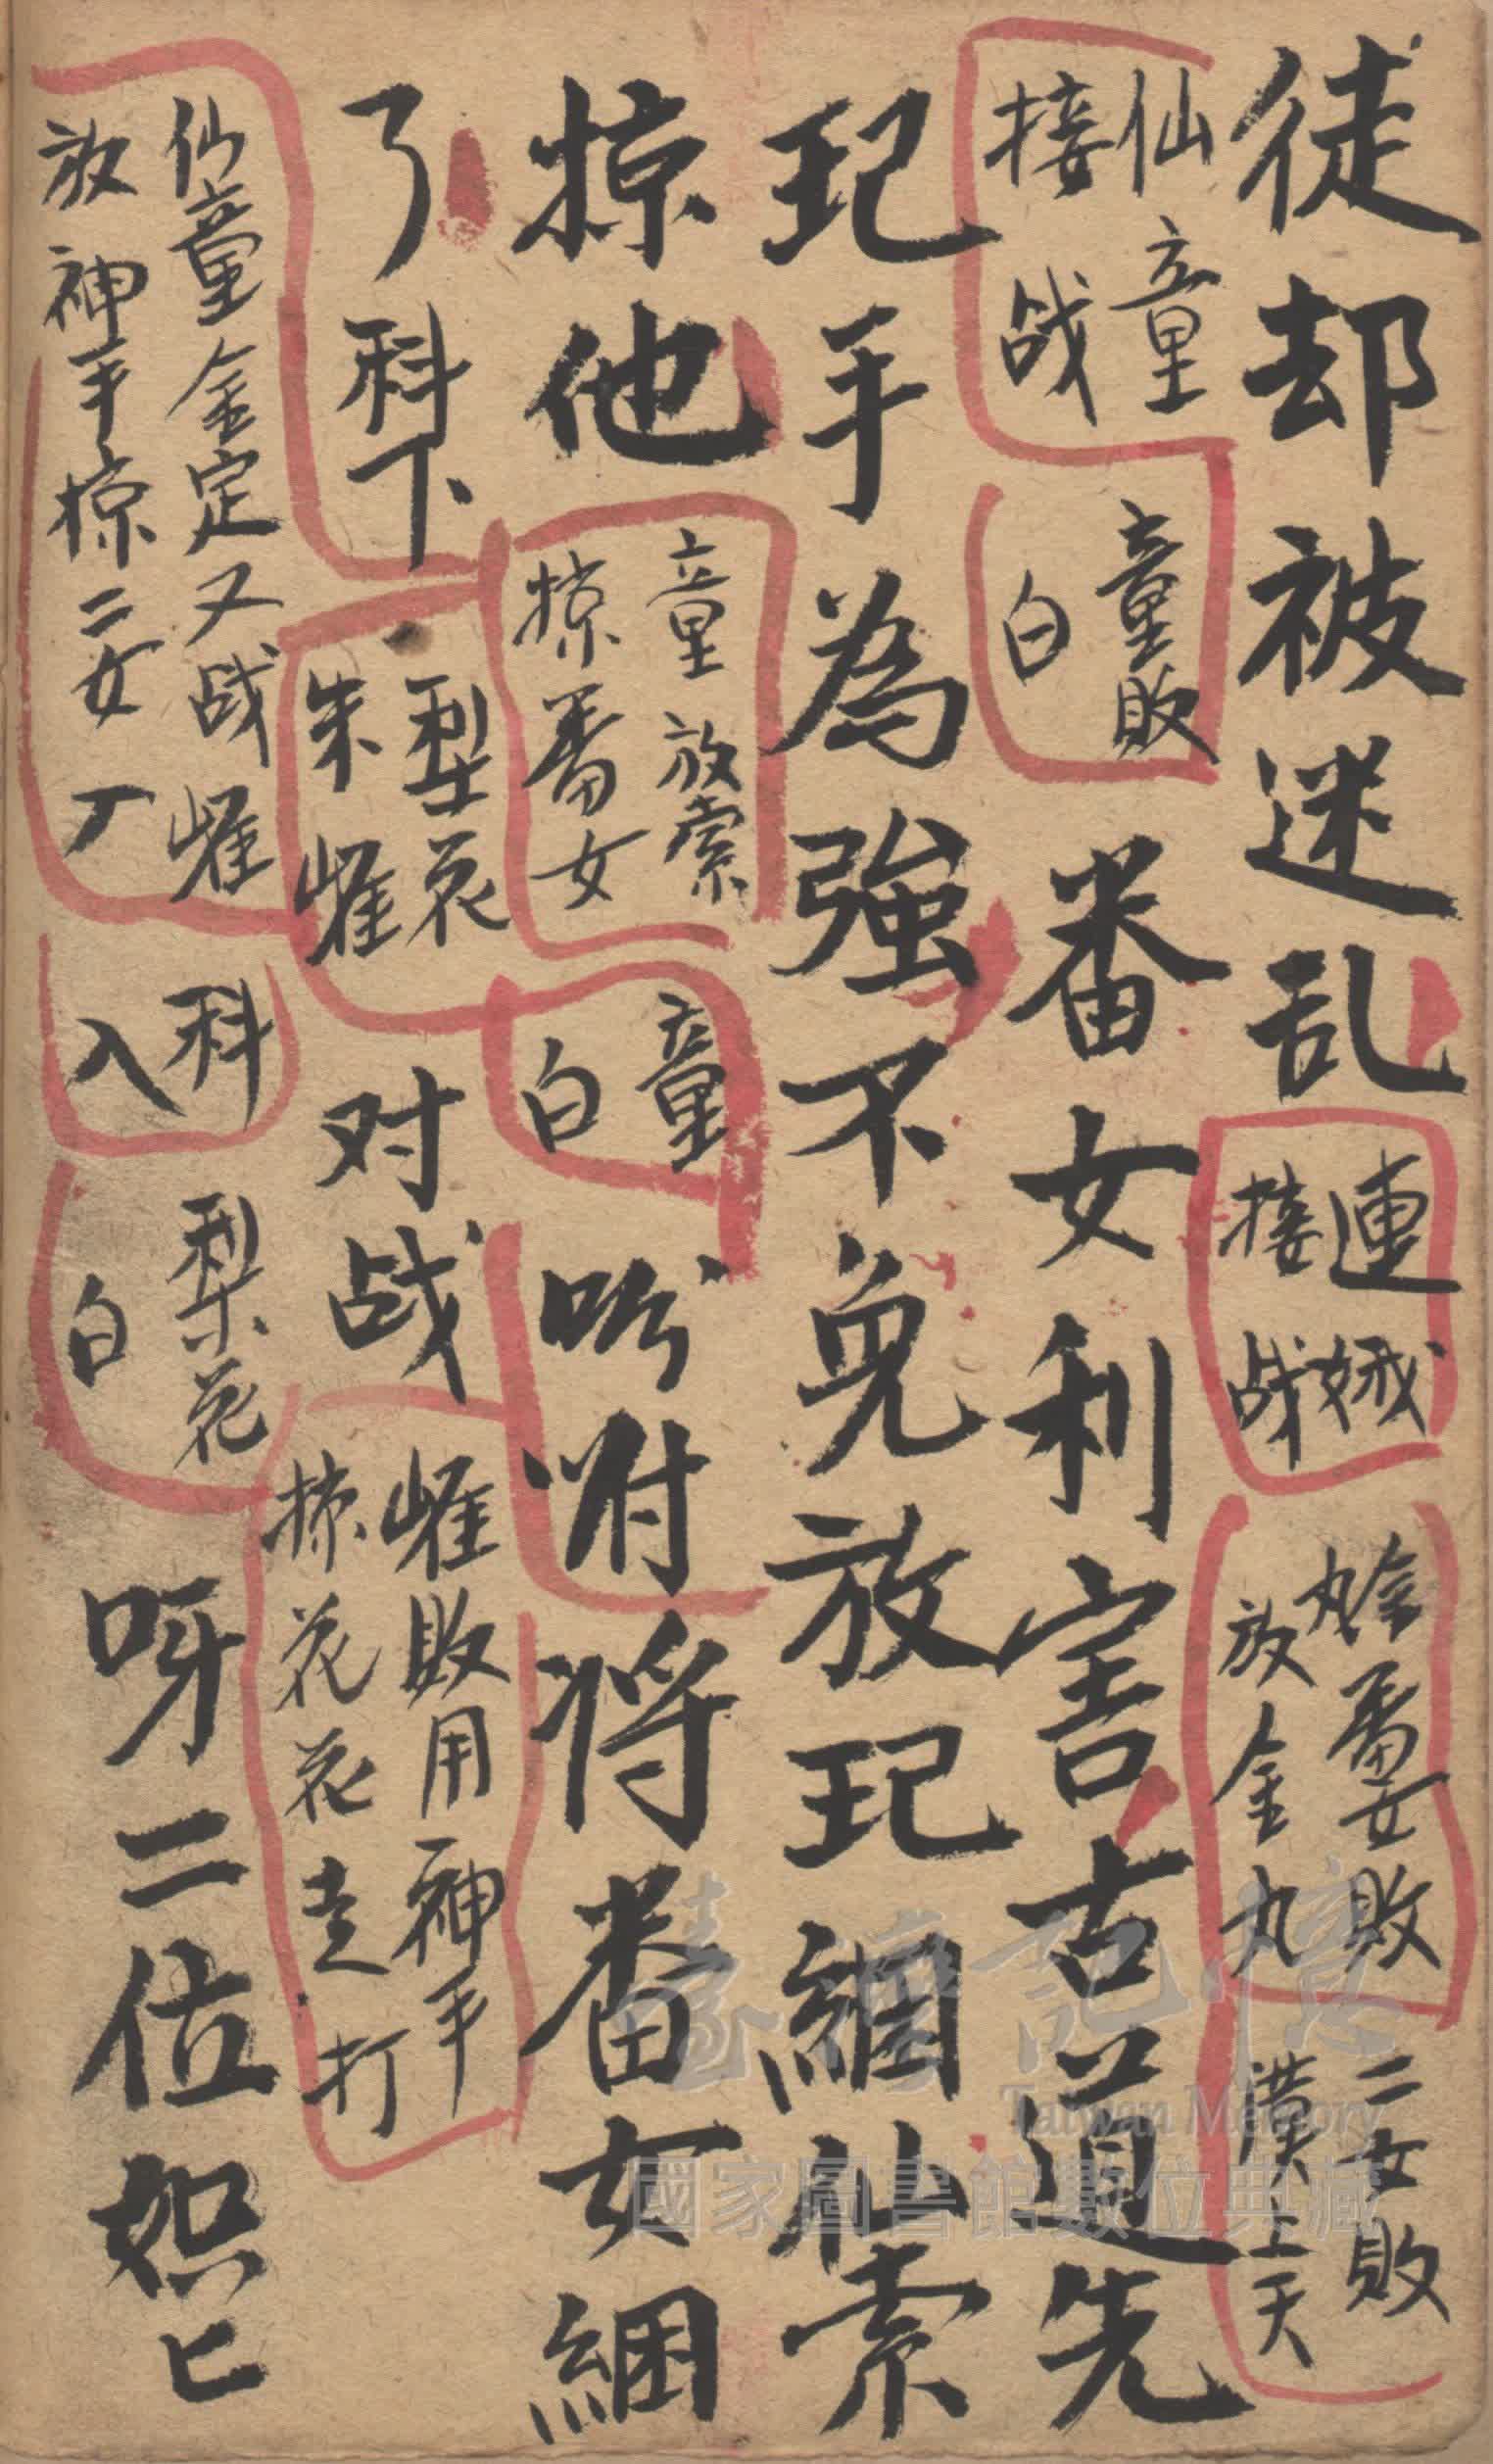 徒却被迷乱
連娥
接战
番女敗
放金丸
二女敗
漢上天
仙童
接战
童敗
白
番女利害古道先
玘手為強不免放玘綑仙索
掠他
童放索
掠番女
童
白
吩咐将番女綑
了科下
梨花
朱崔
对战
崔敗用神手
掠花花走打
仙童金定又战崔
放神手掠二女丁
科
入
梨花
白
呀二位恕匕
臺灣記憶
Taiwan Memory
國家圖書館數位典藏